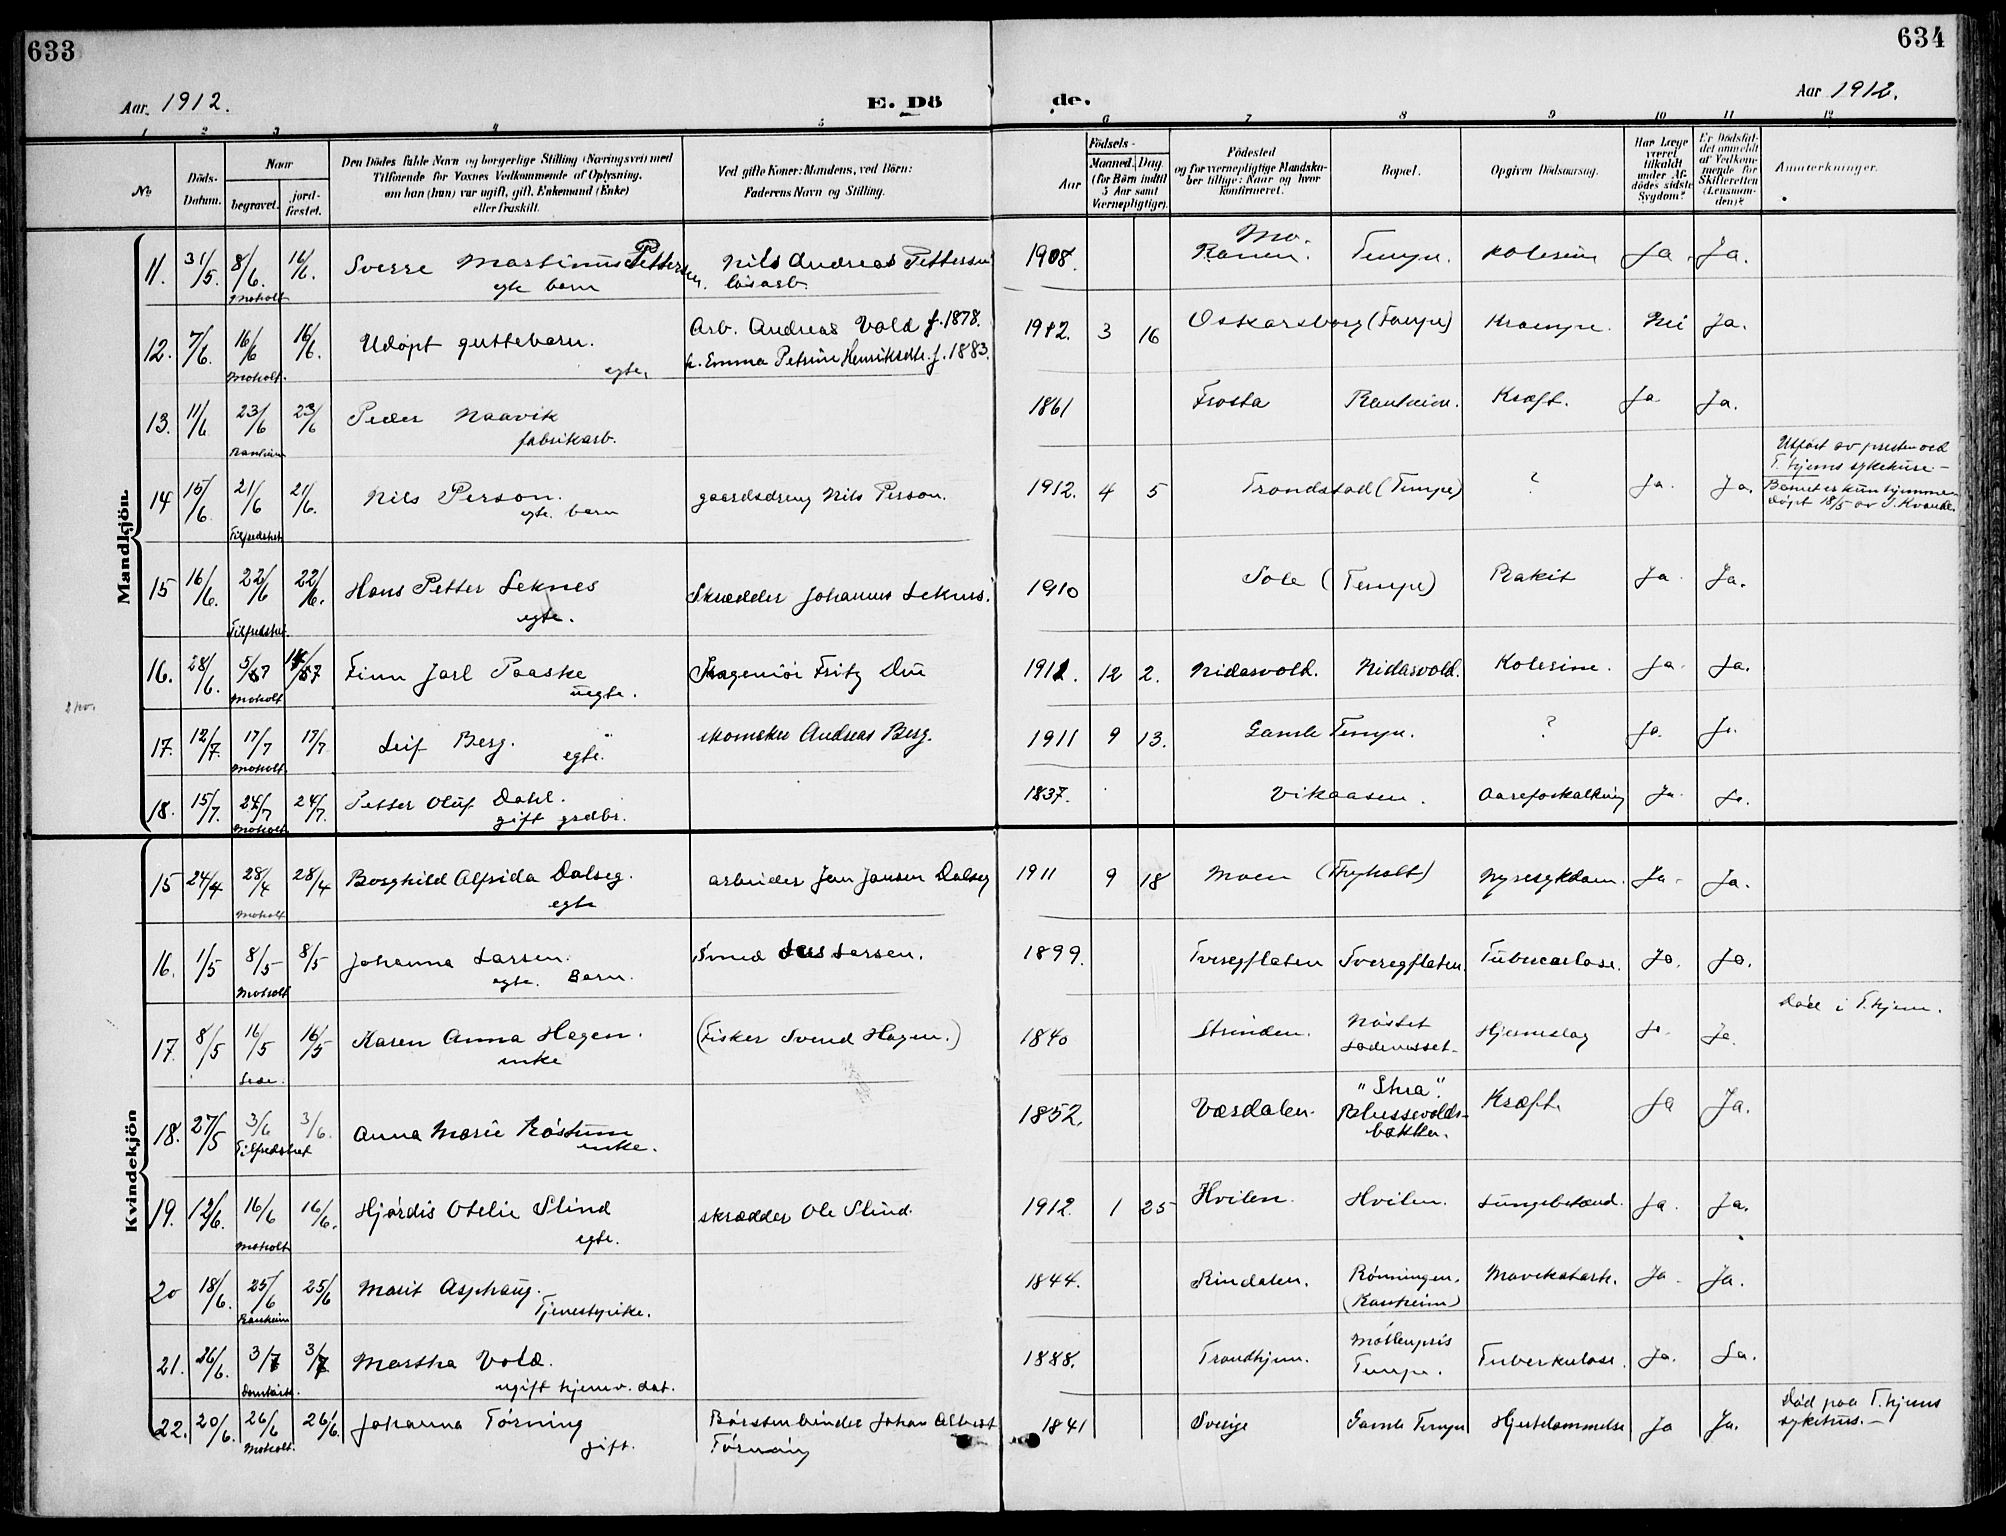 633
634
Aar. 1912.
E. Dö
de.
Aar 1912.
1 2 3 4 5 6 7 8 9 10 11 12
No
Döds-Datum.
Naar
begravet.
jord-fæstet.
Den Dödes fulde Navn og borgerlige Stilling (Næringsvei) med
Tilföiende for Voxnes Vedkommende af Oplysning,
om han (hun) var ugift, gift, Enkemand (Enke)
eller fraskilt.
Ved gifte Koner: Mandens, ved Börn:
Faderens Navn og Stilling.
Födsels-
Aar
Maaned. Dag.
(for Börn indtil
5 Aar samt
Værnepligtige).
Födested
og for værnepligtige Mandska-
ber tillige: Naar og hvor
konfirmeret.
Bopæl.
Opgiven Dödsaarsag.
Har Læge
været
tilkaldt
under Af-
dödes sidste
Sygdom?
Er Dödsfal-
det anmeldt
af Vedkom-
mende for
Skifteretten
(Lensman-
den)?
Anmærkninger.
Mandkjön.
11. 31/5. 8/6. Moholt 16/6. Sverre Martinus Pettersen. egte barn Nils Andreas Pettersen løsarb. 1908. Mo. Ranen. Tempe. Kolerine Ja. Ja.
12. 7/6. 16/6 Moholt. 16/6. Udøpt guttebarn. egte. Arb. Andreas Vold f. 1878.
h. Emma Petrine Henriksdtr. f. 1883. 1912. 3 16 Oskarsborg (Tempe) Krampe. Nei Ja.
13. 11/6 23/6 Ranheim 23/6 Peder Naavik fabrikarb. 1861 Frosta Ranheim. Kræft. Ja Ja.
14 15/6. 21/6 Tilfredshet 21/6. Nils Person. egte barn gaardsdreng Nils Person. 1912. 4 5 Trondstad (Tempe) ? Ja. Ja.
Utført av presten ved
T.hjems sykehuse.—
Barnet er kun hjemme-
døpt 18/5 av J. Kvande.
15 16/6. 22/6 Tilfredshet. 22/6. Hans Petter Leknes egte. Skrædder Johannes Leknes. 1910 Sole (Tempe) Rakit Ja. Ja.
16. 28/6. 5/7 Moholt 14/7 Finn Jarl Paaske uegte. Fritz Due 1911. 12 2. Nidarvold. Nidarvold. Kolerine. Ja. Ja.
17. 12/7. 17/7 Moholt 17/7 Leif Berg. egte. skomaker Andreas Berg. 1911 9 13. Gamle Tempe. ? Ja. Ja.
18. 15/7. 24/7 Moholt 24/7. Petter Oluf Dahl. gift grdbr. 1837. Vikaasen. Aareforkalkning Ja. Ja.
Kvindekjön
15 24/4 28/4 Moholt 28/4 Borghild Alfrida Dalseg. egte arbeider Jon Jonsen Dalseg 1911 9 18 Moen (Tyholt) Nyresykdom. Ja. Ja.
16. 1/5 8/5 Moholt 8/5 Johanna Larsen. egte. Barn. Smed Lars Larsen. 1899. Tveregflaten Tveregflaten. Tuberculose. Ja. Ja.
17. 8/5 16/5 Lade. 16/5 Karen Anna Hagen. enke (Fisker Svend Hagen.) 1840 Strinden. Nøsset Ladenesset. Hjerneslag Ja. Ja. Død i T.hjem.
18. 27/5 3/6 Tilfredshet 3/6. Anna Marie Røstum enke. 1852. Værdalen. "Stua". Belussevolds-bakken. Kræft. Ja Ja.
19. 12/6. 16/6 Moholt 16/6. Hjørdis Otelie Slind egte. skrædder Ole Slind. 1912. 1 25 Hvilen. Hvilen. Lungebetænd. Ja. Ja.
20 18/6. 25/6 Ranheim 25/6 Marit Asphaug. Tjenestepike. 1844. Rindalen. Rønningen. (Ranheim) Mavekatarh. Ja. Ja.
21. 26/6. 3/7 Domkirk. 3/7 Martha Vold. ugift hjemv. dat. 1888. Trondhjem. Møllenpris Tempe. Tuberkulose. Ja. Ja.
22. 20/6. 26/6 Moholt. 26/6. Johanna Tørning gift. Børstenbinder Johan Albert Tørning 1841 Sverige Gamle Tempe Hjertelammelse Ja Ja. Død paa T.hjems sykehus.—